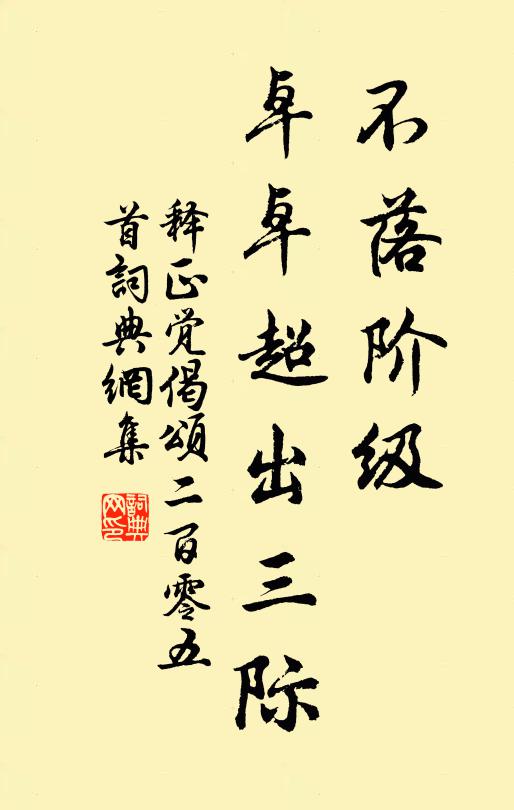 不落阶级
卓卓超出三际
释正觉偈颂二百零五
首詞典網集
詞典
网印